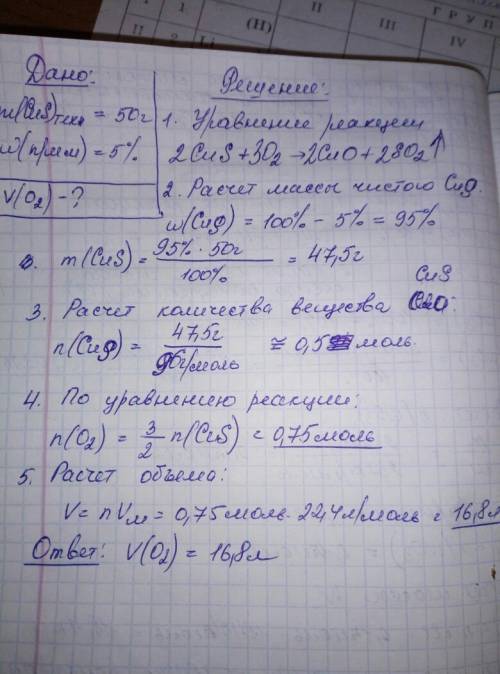 II
ГРУП
1
1
(H)
II
III
IV
2
Li
Дано:
Решение:
m(CuS)техн = 50г
1. Уравнение реакции
w(прим) = 5%
2CuS+3O₂→2CuO+2SO₂↑
V(O₂) - ?
2. Расчет массы чистого CuS.
w(CuS) = 100% - 5% = 95%
m(CuS) = 95% · 50г / 100% = 47,5г
CuS
3. Расчет количества вещества
n(CuS) = 47,5г / 96г/моль ≅ 0,5 моль.
4. По уравнению реакции:
n(O₂) = 3/2 n(CuS) = 0,75 моль
5. Расчет объема:
V = nVм = 0,75 моль · 22,4 л/моль = 16,8л
Ответ: V(O₂) = 16,8л